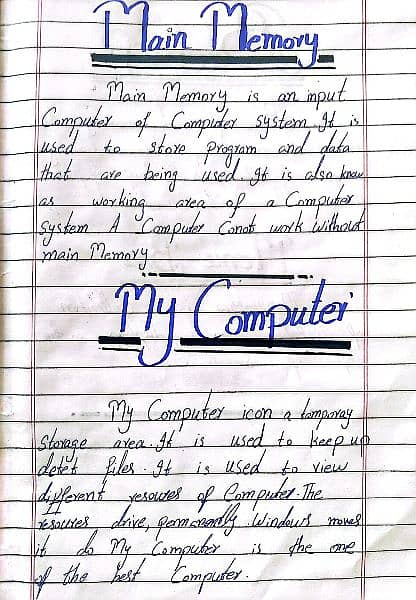 Main Memory
Main Memory is an input
Computer of Computer system. It is
used to store program and data
that are being used. It is also know
as working area of a Computer
System A Computer Conot work without
main Memory
My Computer
My Computer icon a temporay
Storage area. It is used to keep up
delet files. It is used to view
different resoures of Computer. The
resoures drive, permanantly. Windows moves
it do My Computer is the one
of the best Computer.